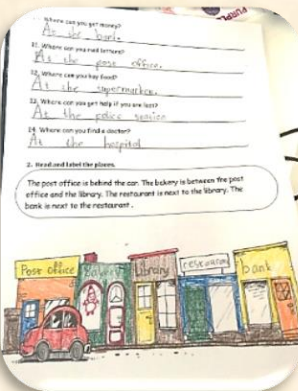 Where can you get money?
At the bank.
11. Where can you mail letters?
At the post office.
12. Where can you buy food?
At the supermarket.
13. Where can you get help if you are lost?
At the police station
14. Where can you find a doctor?
At the hospital
2. Read and label the places.
The post office is behind the car. The bakery is between the post
office and the library. The restaurant is next to the library. The
bank is next to the restaurant.
Post Office Bakery Library restaurant bank